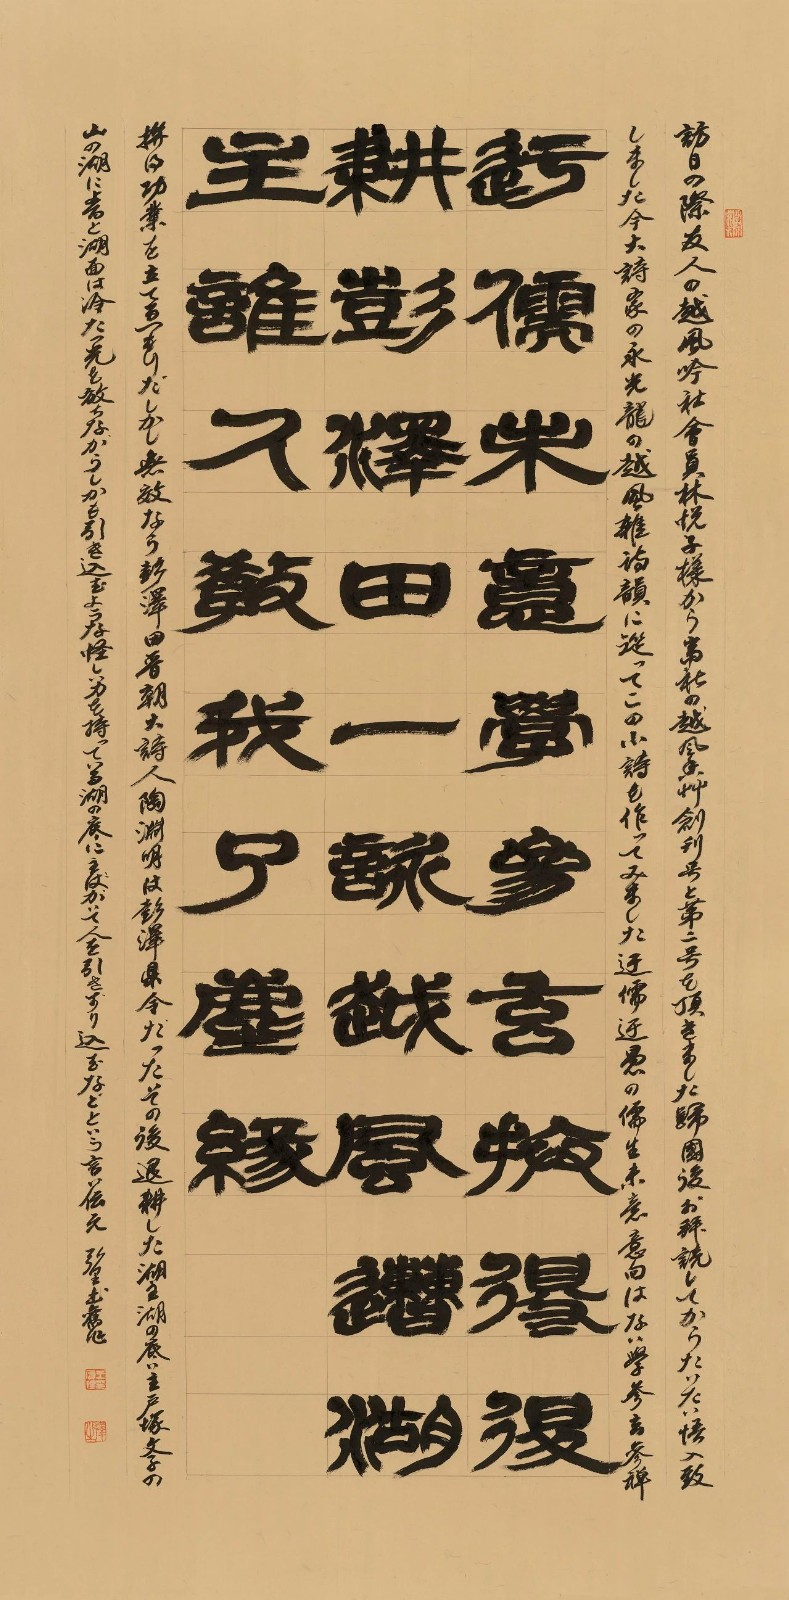 訪日の際友人の越風吟社會員林悦子様から當社の越風艸創刊号と第二号を頂きました歸國後お拝読してからたいたい悟入致
しました今大詩家の永光龍の越風雜詩韻に從ってこの小詩を作ってみました迂儒迂愚の儒生未意意向はない學參玄參禅
迂儒未意學參玄拚得退
耕彭澤田一詠越風遭湖
主誰久敎我了塵緣
拚得功業を立てるつもりだしかし無效なら彭澤田晋朝大詩人陶淵明は彭澤県令だったその後退耕した湖主湖の底い主戸塚文子の
山の湖に著と湖面は冷たい光を放ちながらしかも引き込むような怪しい力を持っている湖の底に主がいて人を引きずり込むなどという言い伝え